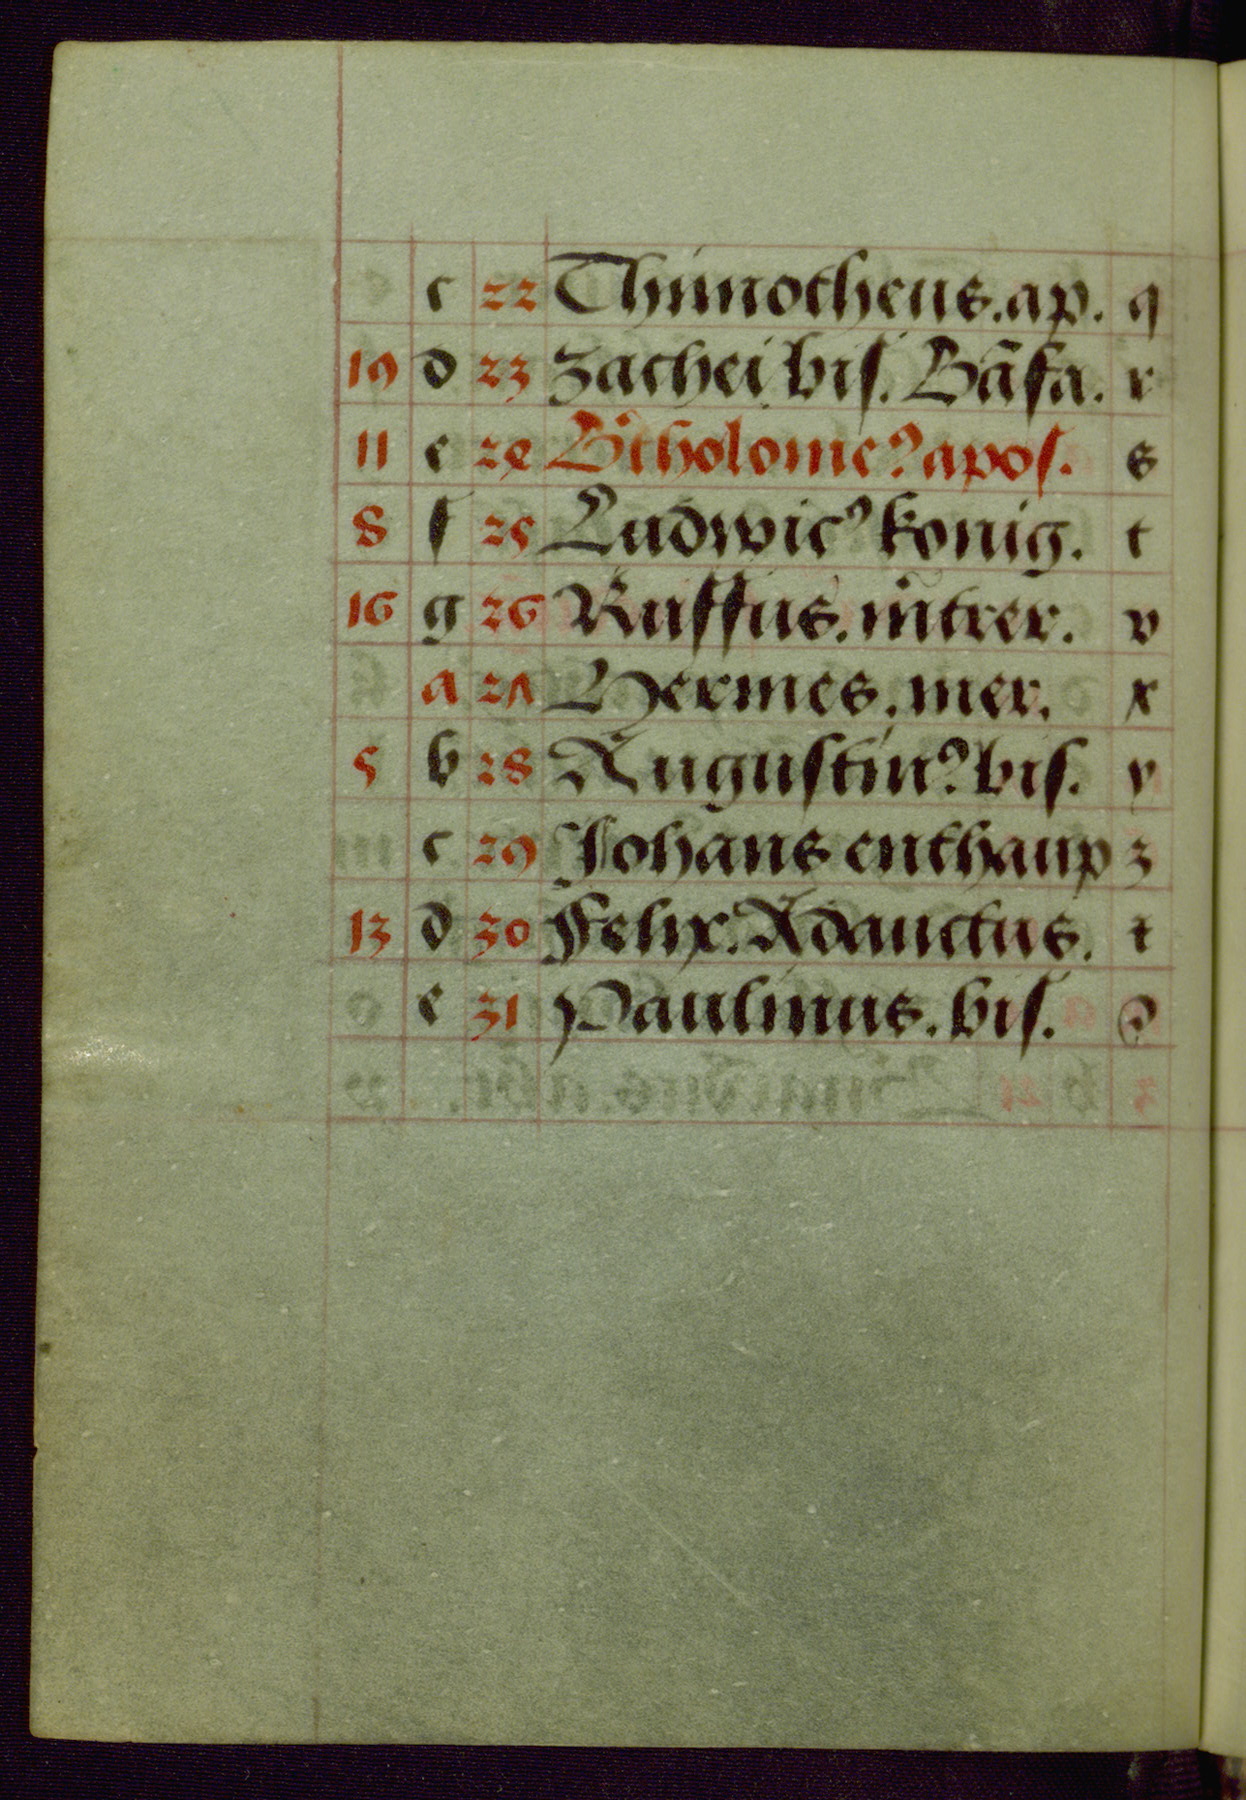 c 22 Thimotheus. ap. q
19 d 23 Zachei bis. Bāfa. r
11 e 24 Btholome9 apos. s
8 f 25 Ludwic9 konig. t
16 g 26 Ruffus. mtrer. v
a 27 Hermes. mer. x
5 b 28 Augustin9 bis. y
c 29 Johans enthaup z
13 d 30 Felix. Adauctus. t
e 31 Paulinus. bis. 9